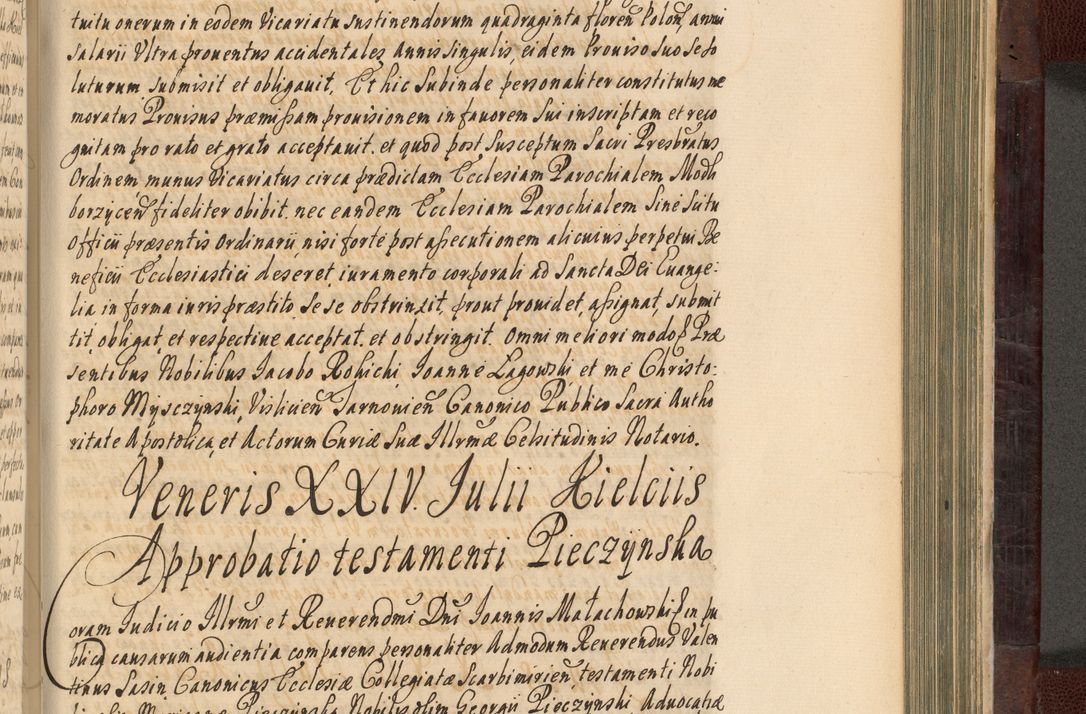 tuitu onerum in eodem Vicariatu sustinendorum quadraginta floreñ Poloñ, annui
salarii Ultra proventus accidentales Annis singulis, eidem Proviso suo se so
luturum submisit et obligavit. Et hic subinde personaliter constitutus me
moratus Provisus præmissam provisionem in favorem sui inscriptam et reco
gnitam pro rato et grato acceptavit. et quod post susceptum Sacri Presbratus
Ordinem munus Vicariatus circa prædictam Ecclesiam Parochialem Modli
borzyceñ fideliter obibit. nec eandem Ecclesiam Parochialem sine Scitu
Officii præsentis Ordinarii, nisi forte post assecutionem alicuius perpetui Be
neficii Ecclesiastici deseret, iuramento corporali ad Sancta Dei Evange:
lia in forma iuris præstito se se obstrinxit, prout providet, assignat, submit
tit, obligat, et respective acceptat. et obstringit. Omni meliori modo &c Præ
sentibus Nobilibus Iacobo Rokicki, Ioanne Łagowski et me Christo:
phoro Mysczynski, Vislicieñ Tarnovieñ Canonico Publico Sacra Autho
ritate Apostolica, et Actorum Curiæ Suæ Illrmæ Celsitudinis Notario.
Veneris XXIV. Iulii Kielciis
Approbatio testamenti Pieczÿnska
Coram Iudicio Illrmi et Reverendmi Dni Ioannis Małachowski &c in pu
blica causarum audientia comparens personaliter Admodum Reverendus Valen
tinus Sasin Canonicus Ecclesiæ Collegiatæ Scarbimirieñ, testamenti Nobi
lis olim Mariannæ Pieczynska Nobilis olim Georgii Pieczynski Advocatiæ